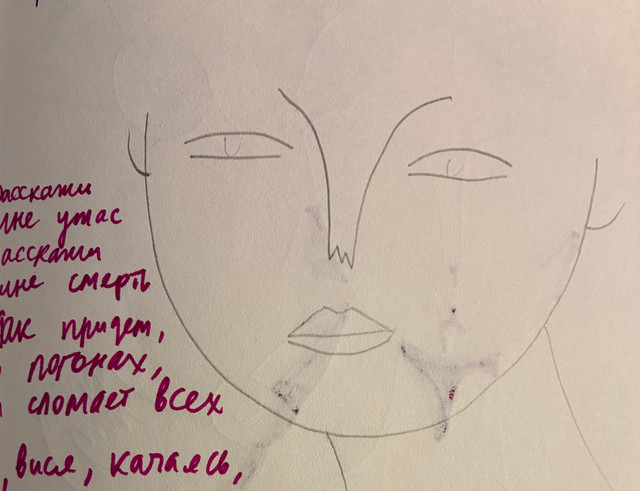 Расскажи
мне ужас
Расскажи
мне смерть
Как придет,
погонах,
сломает всех
, вися, качаясь,